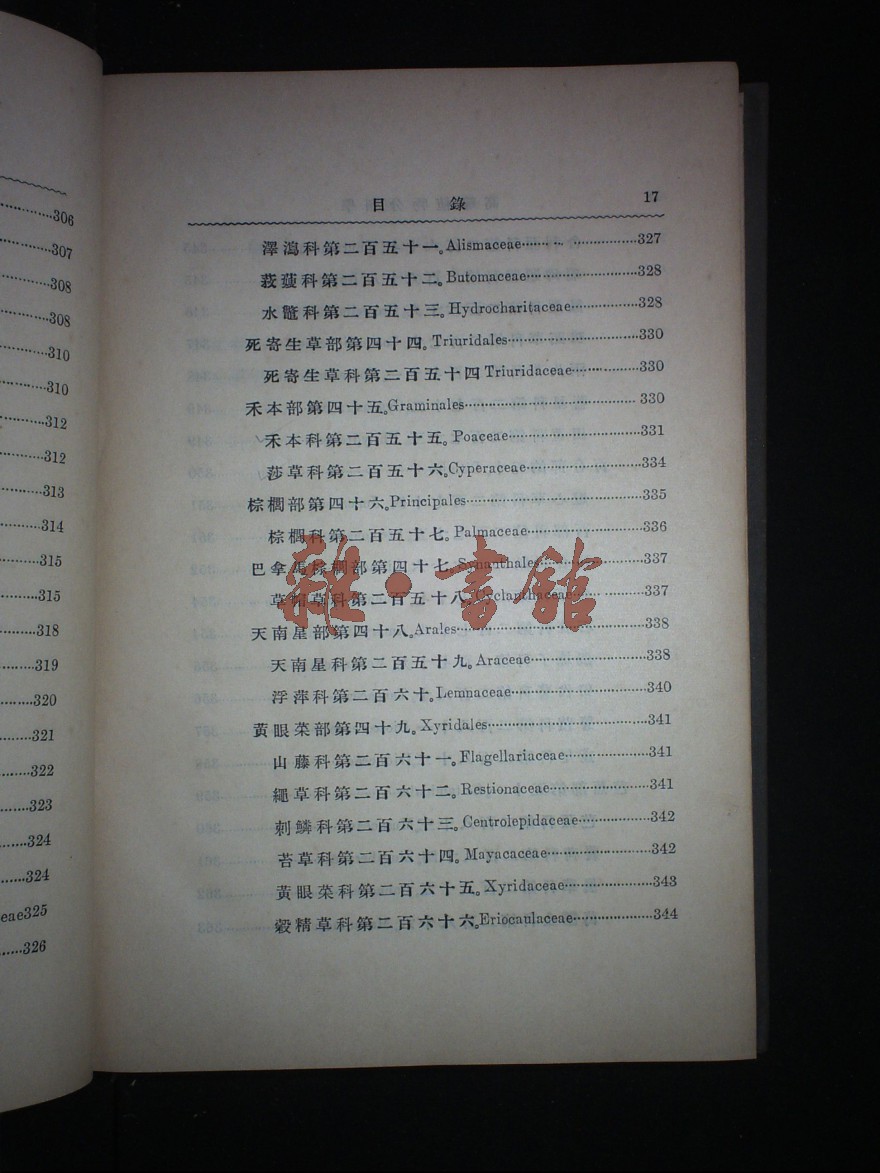 306
307
308
308
310
310
312
312
313
314
315
315
318
319
320
321
322
323
324
324
eae325
326
目錄 17
澤瀉科第二百五十一。Alismaceae 327
菽蕿科第二百五十二。Butomaceae 328
水鼈科第二百五十三。Hydrocharitaceae 328
死寄生草部第四十四。Triuridales 330
死寄生草科第二百五十四 Triuridaceae 330
禾本部第四十五。Graminales 330
禾本科第二百五十五。Poaceae 331
莎草科第二百五十六。Cyperaceae 334
棕櫚部第四十六。Principales 335
棕櫚科第二百五十七。Palmaceae 336
巴拿馬棕櫚部第四十七。Synanthales 337
草帽草科第二百五十八。Cyclanthaceae 337
天南星部第四十八。Arales 338
天南星科第二百五十九。Araceae 338
浮萍科第二百六十。Lemnaceae 340
黃眼菜部第四十九。Xyridales 341
山藤科第二百六十一。Flagellariaceae 341
繩草科第二百六十二。Restionaceae 341
刺鱗科第二百六十三。Centrolepidaceae 342
苔草科第二百六十四。Mayacaceae 342
黃眼菜科第二百六十五。Xyridaceae 343
穀精草科第二百六十六。Eriocaulaceae 344
雜·書館